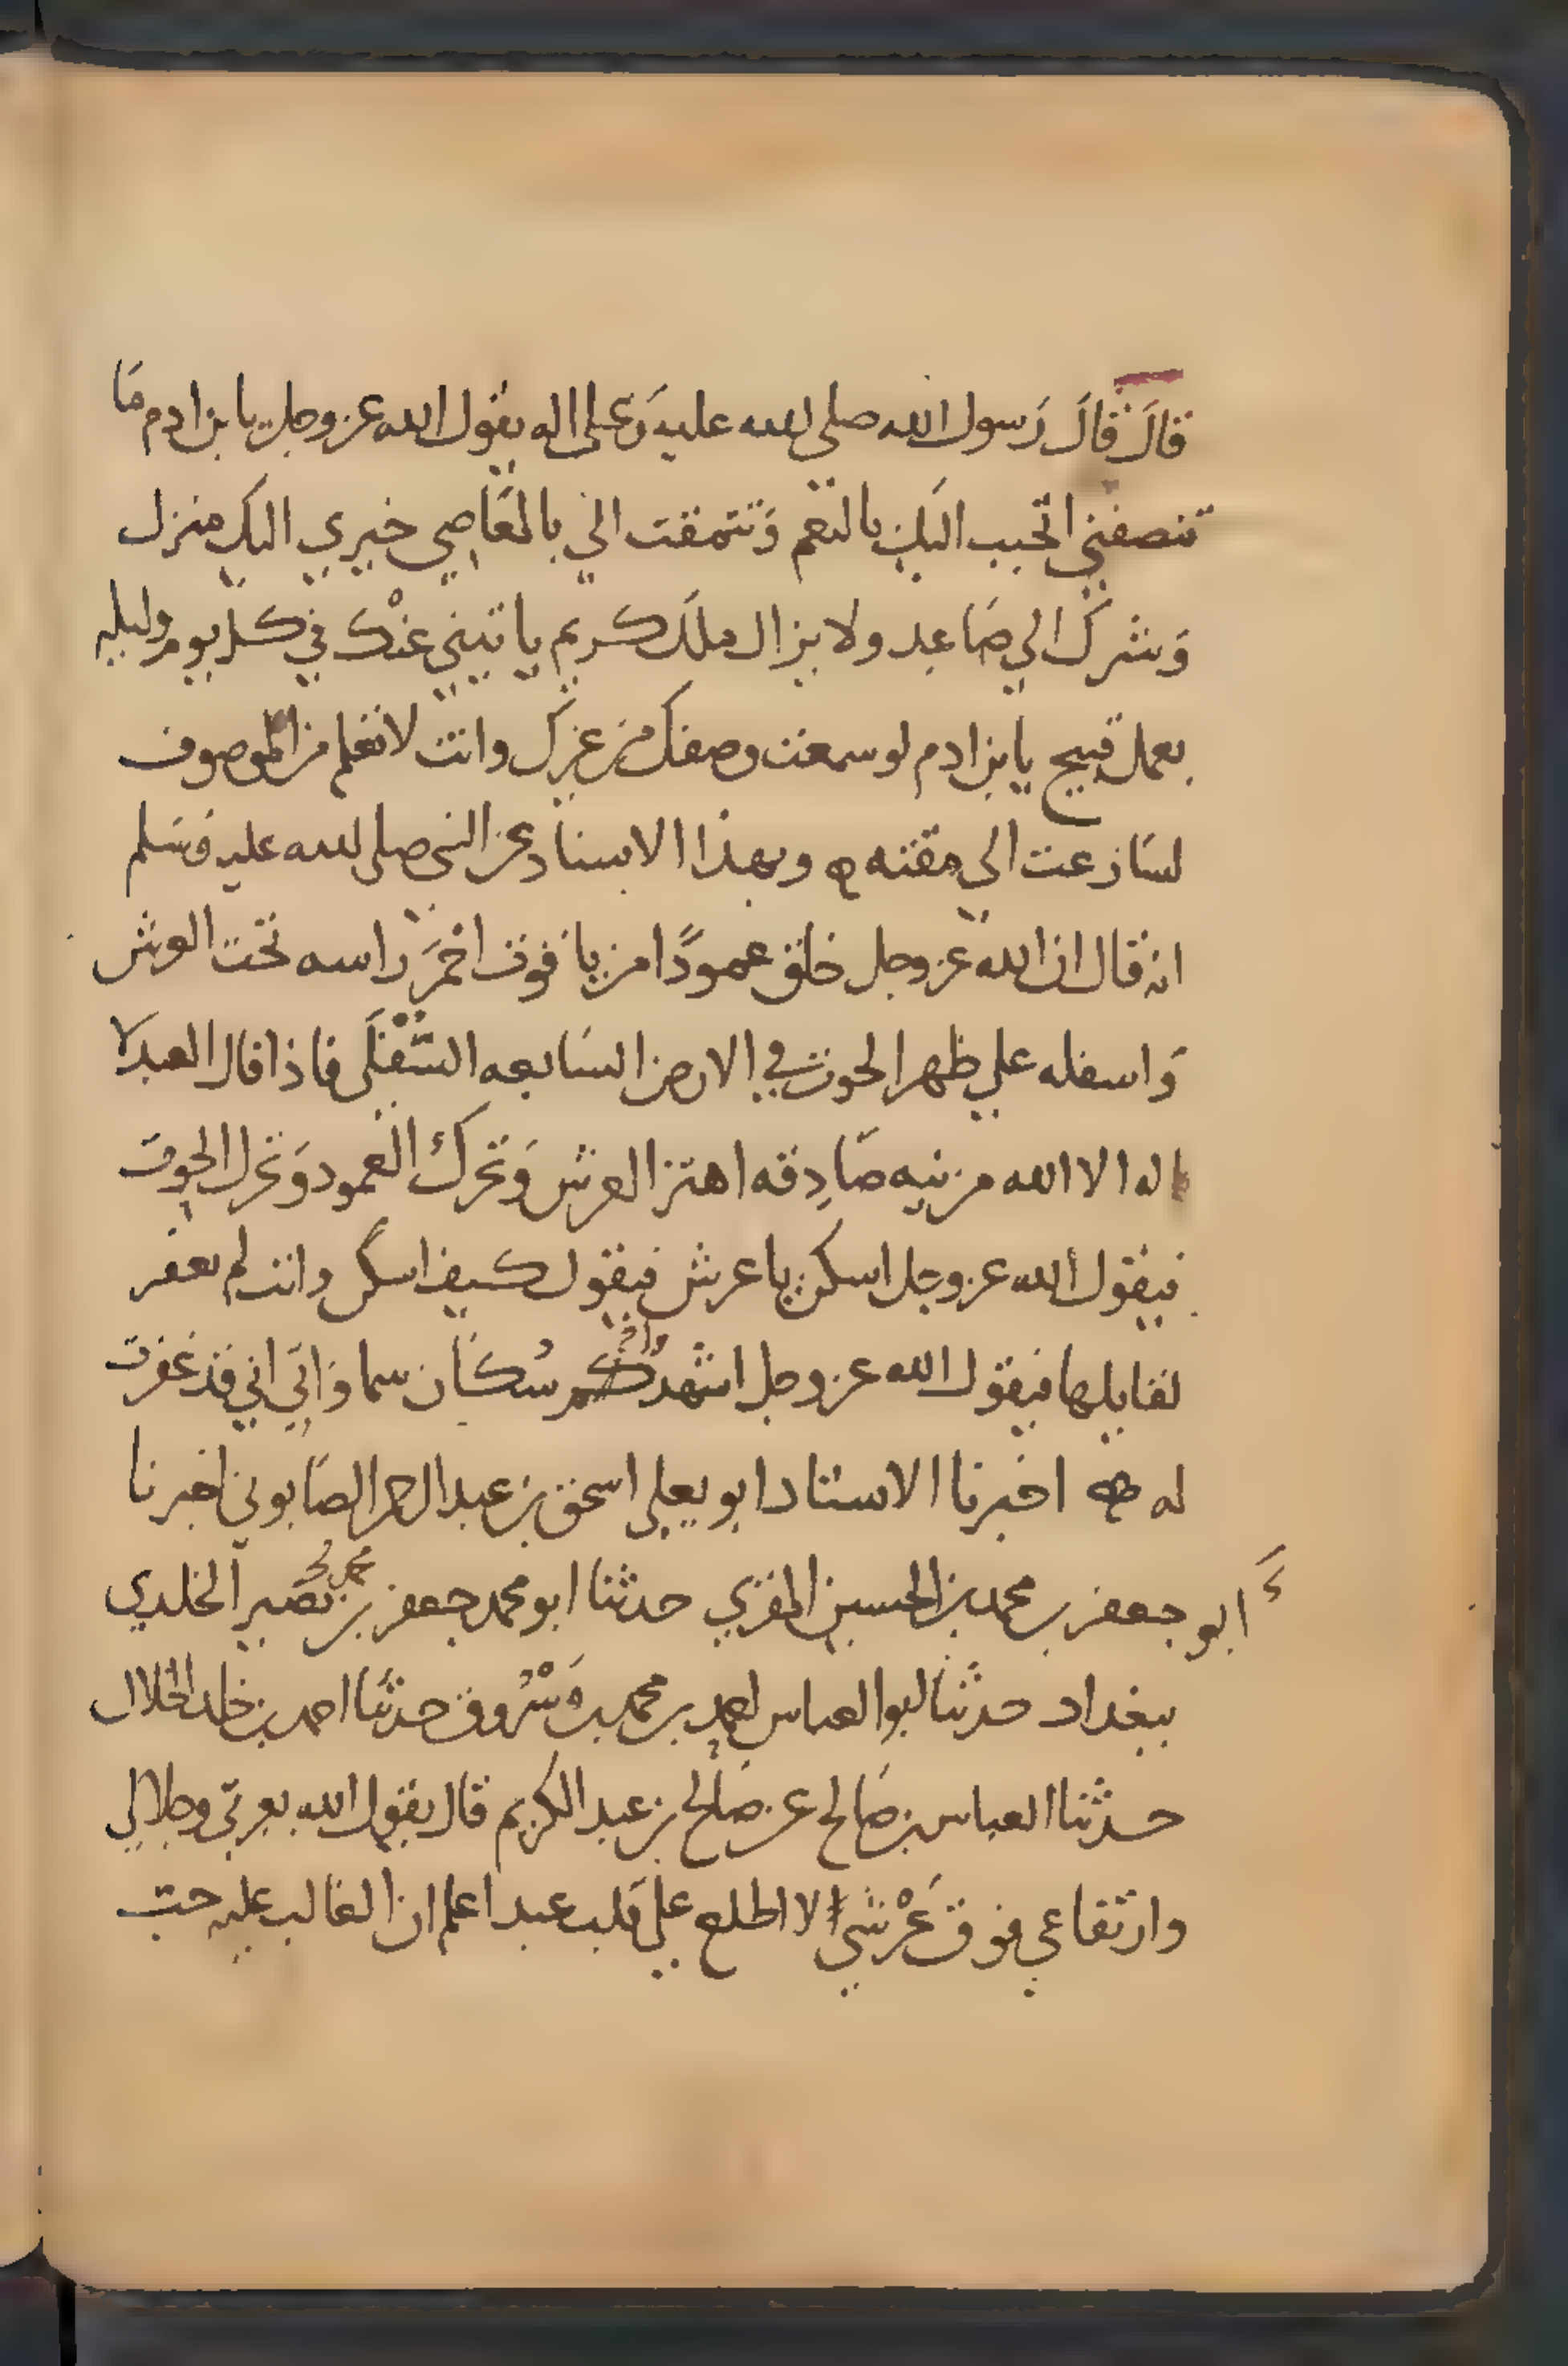 قالَ قالَ رَسول الله صلى الله عليه وَعلى اله يقول الله عز وجل يا بن ادم مَا
تنصفني اتحبب اليك بالنعم وَتتمقت الي بالمعَاصي خيري اليك منزل
وَشرك الي صَاعد ولا يزال ملَك كريم ياتيني عنْك في كل يوم وليله
بعمل قبيح يا بن ادم لو سمعت وصفك من غيرك وانت لا تعلم من الموصوف
لسَارعت الي مقته ه وبهذا الاسناد عن النبي صلى الله عليه وَسَلم
انه قال ان الله عز وجل خلق عمودًا من ياقوت احْمَرَ راسه تحت العرش
وَاسفله علي ظهر الحوت في الارض السَابعه السُّفْلَى فاذا قال العبد لا
اله الا الله من نيه صَادِقه اهتز العرش وَتحرك العمود وَتحرك الحوت
فيقول الله عز وجل اسكن يا عرش فيقول كيف اسكن وانت لم تغفر
لقايلها فيقول الله عز وجل اشهدكم سُكان سماواتي اني قد غفرت
له ه اخبرنا الاستاد ابو يعلي اسحق بن عبد الرحمن الصَابوني اخبرنا
ابو جعفر بن محمد بن الحسين المقري حدثنا ابو محمد جعفر بن محمد بن نصير الخلدي
ببغداد حدثنا ابو العباس احمد بن محمد بن مَسْرُوق حدثنا احمد بن خلد الخلال
حدثنا العباس بن صَالح عن صَالح بن عبد الكريم قال يقول الله بعزتي وجلالي
وارتفاعي فوق عَرْشي لا اطلع علي قلب عبد اعلم ان الغالب عليه حب